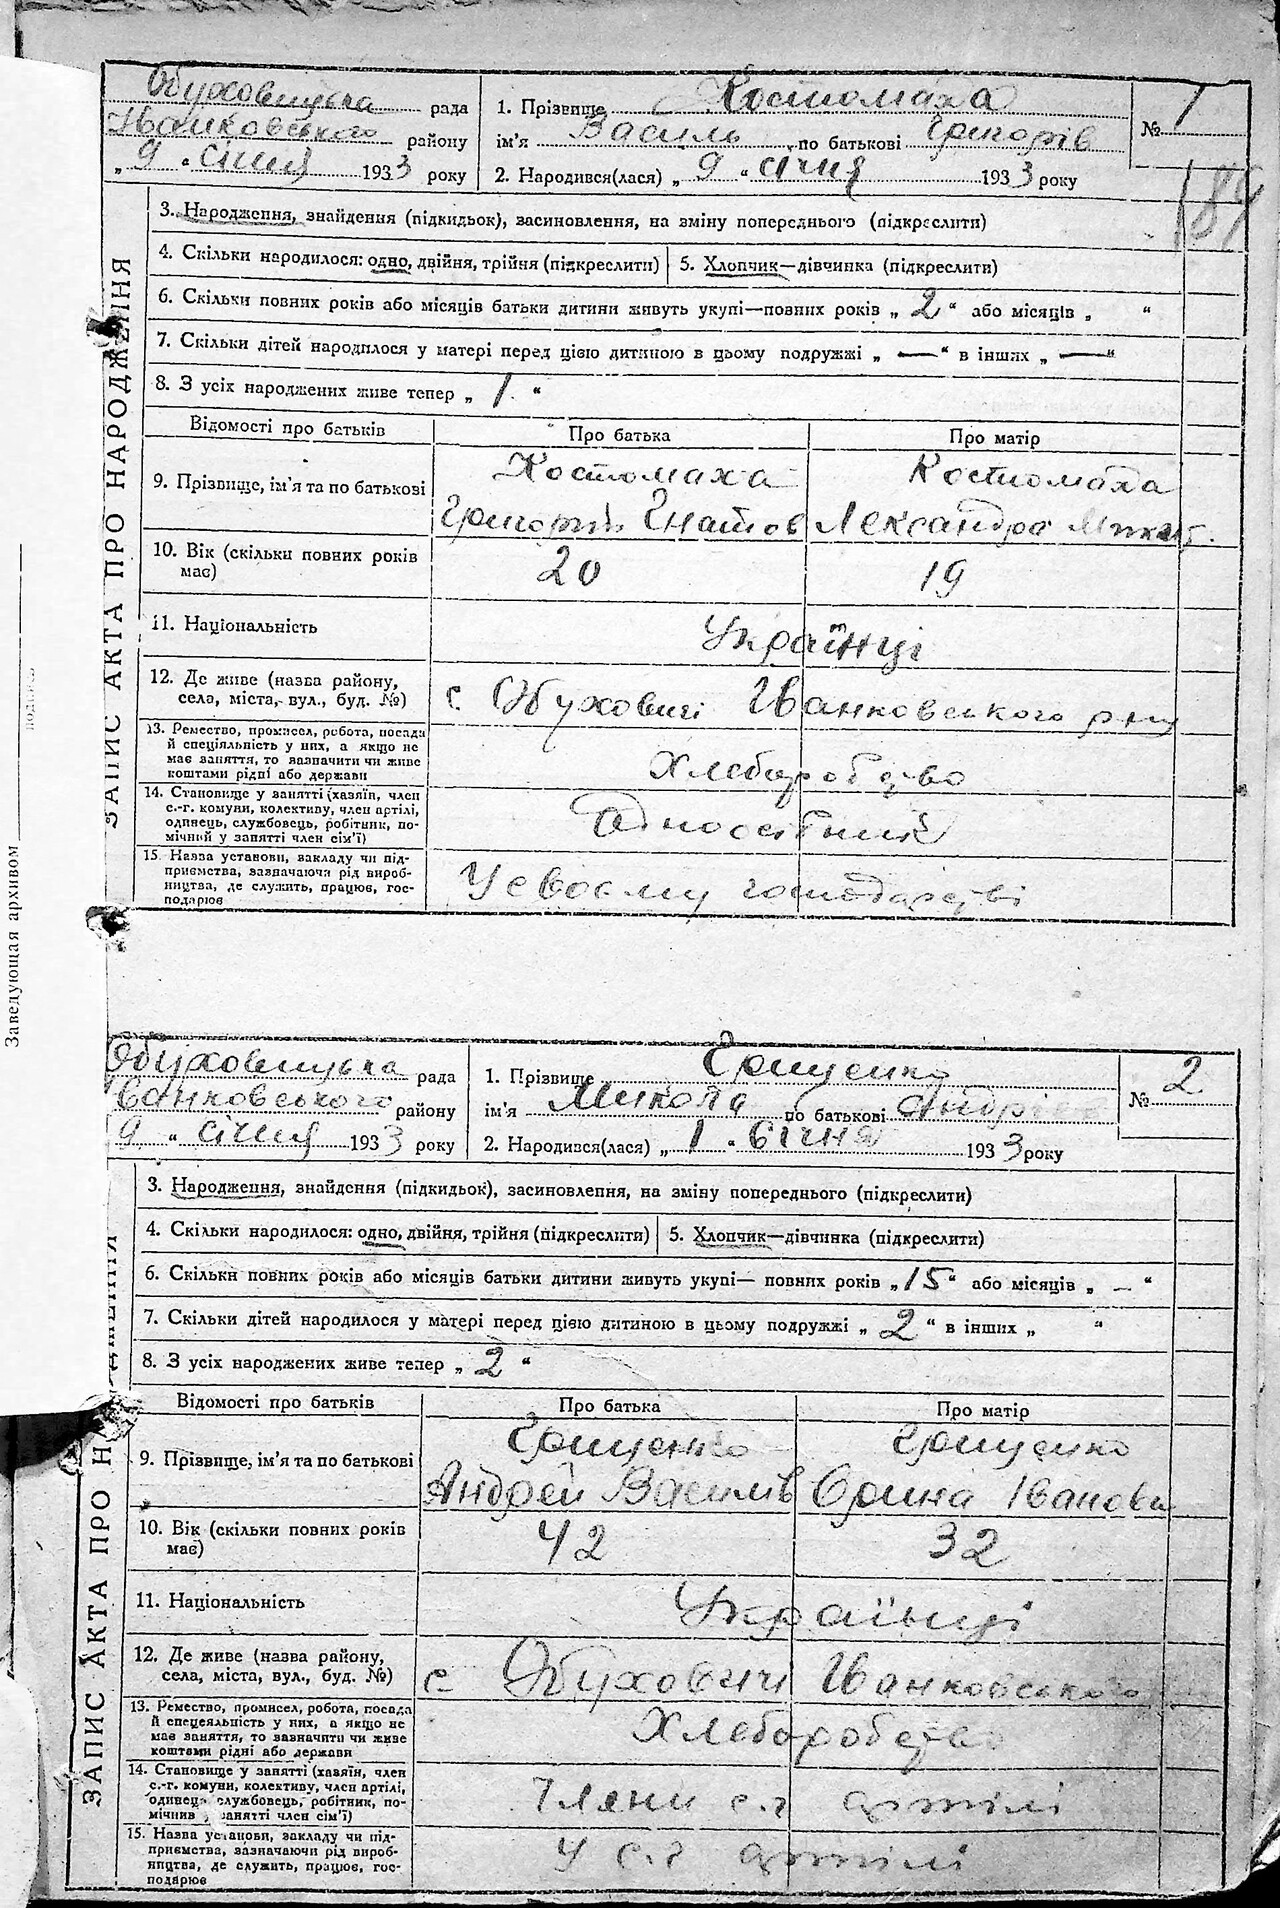 Обуховицька рада
Іванковського району
„ 9 “ січня 1933 року
1. Прізвище Костомаха
ім'я Василь по батькові Григорів
2. Народився(лася) „ 9 “ січня 1933 року
№ 1
189
ЗАПИС АКТА ПРО НАРОДЖЕННЯ
3. Народження, знайдення (підкидьок), засиновлення, на зміну попереднього (підкреслити)
4. Скільки народилося: одно, двійня, трійня (підкреслити)
5. Хлопчик—дівчинка (підкреслити)
6. Скільки повних років або місяців батьки дитини живуть укупі—повних років „ 2 “ або місяців „ “
7. Скільки дітей народилося у матері перед цією дитиною в цьому подружжі „ — “ в інших „ — “
8. З усіх народжених живе тепер „ 1 “
Відомості про батьків
Про батька
Про матір
9. Прізвище, ім'я та по батькові
Костомаха
Григорій Гнатов
Костомаха
Лександра
10. Вік (скільки повних років
має)
20
19
11. Національність
Українці
12. Де живе (назва району,
села, міста, вул., буд. №)
с. Обуховичі Іванковського р-ну
13. Ремество, промисел, робота, посада
й спеціяльність у них, а якщо не
має заняття, то зазначити чи живе
коштами рідні або держави
Хлеборобство
14. Становище у занятті (хазяїн, член
с.-г. комуни, колективу, член артілі,
одинець, службовець, робітник, по-
мічний у занятті член сім'ї)
Односібний
15. Назва установи, закладу чи під-
приємства, зазначаючи рід вироб-
ництва, де служить, працює, гос-
подарює
У своєму господарстві
Заведующая архивом
подпись
Обуховицька рада
Іванковського району
9 “ січня 1933 року
1. Прізвище Грищенко
ім'я Микола по батькові Андрів
2. Народився(лася) „ 1 “ січня 1933 року
№ 2
ЗАПИС АКТА ПРО НАРОДЖЕННЯ
3. Народження, знайдення (підкидьок), засиновлення, на зміну попереднього (підкреслити)
4. Скільки народилося: одно, двійня, трійня (підкреслити)
5. Хлопчик—дівчинка (підкреслити)
6. Скільки повних років або місяців батьки дитини живуть укупі— повних років „ 15 “ або місяців „ — “
7. Скільки дітей народилося у матері перед цією дитиною в цьому подружжі „ 2 “ в інших „ “
8. З усіх народжених живе тепер „ 2 “
Відомості про батьків
Про батька
Про матір
9. Прізвище, ім'я та по батькові
Грищенко
Андрей Василів
Грищенко
Орина Іванова
10. Вік (скільки повних років
має)
42
32
11. Національність
Українці
12. Де живе (назва району,
села, міста, вул., буд. №)
с Обуховичі Іванковського
13. Ремество, промисел, робота, посада
й спецеяльність у них, а якщо не
має заняття, то зазначити чи живе
коштами рідні або держави
Хлеборобство
14. Становище у занятті (хазяїн, член
с.-г. комуни, колективу, член артілі,
одинець службовець, робітник, по-
мічнив у занятті член сім'ї)
Члени с.г артілі
15. Назва установи, закладу чи під-
приємства, зазначаючи рід вироб-
ництва, де служить, працює, гос-
подарює
У с.г артілі